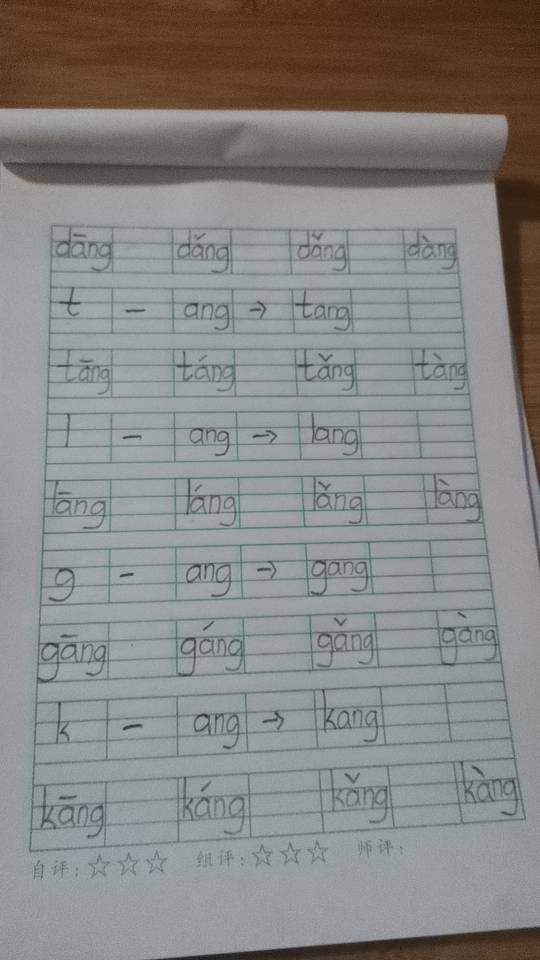 dāng dǎng dǎng dàng
t - ang → tang
tāng táng tǎng tàng
l - ang → lang
lāng láng lǎng làng
g - ang → gang
gāng gáng gǎng gàng
k - ang → kang
kāng káng kǎng kàng
自评：☆☆☆ 组评：☆☆☆ 师评：